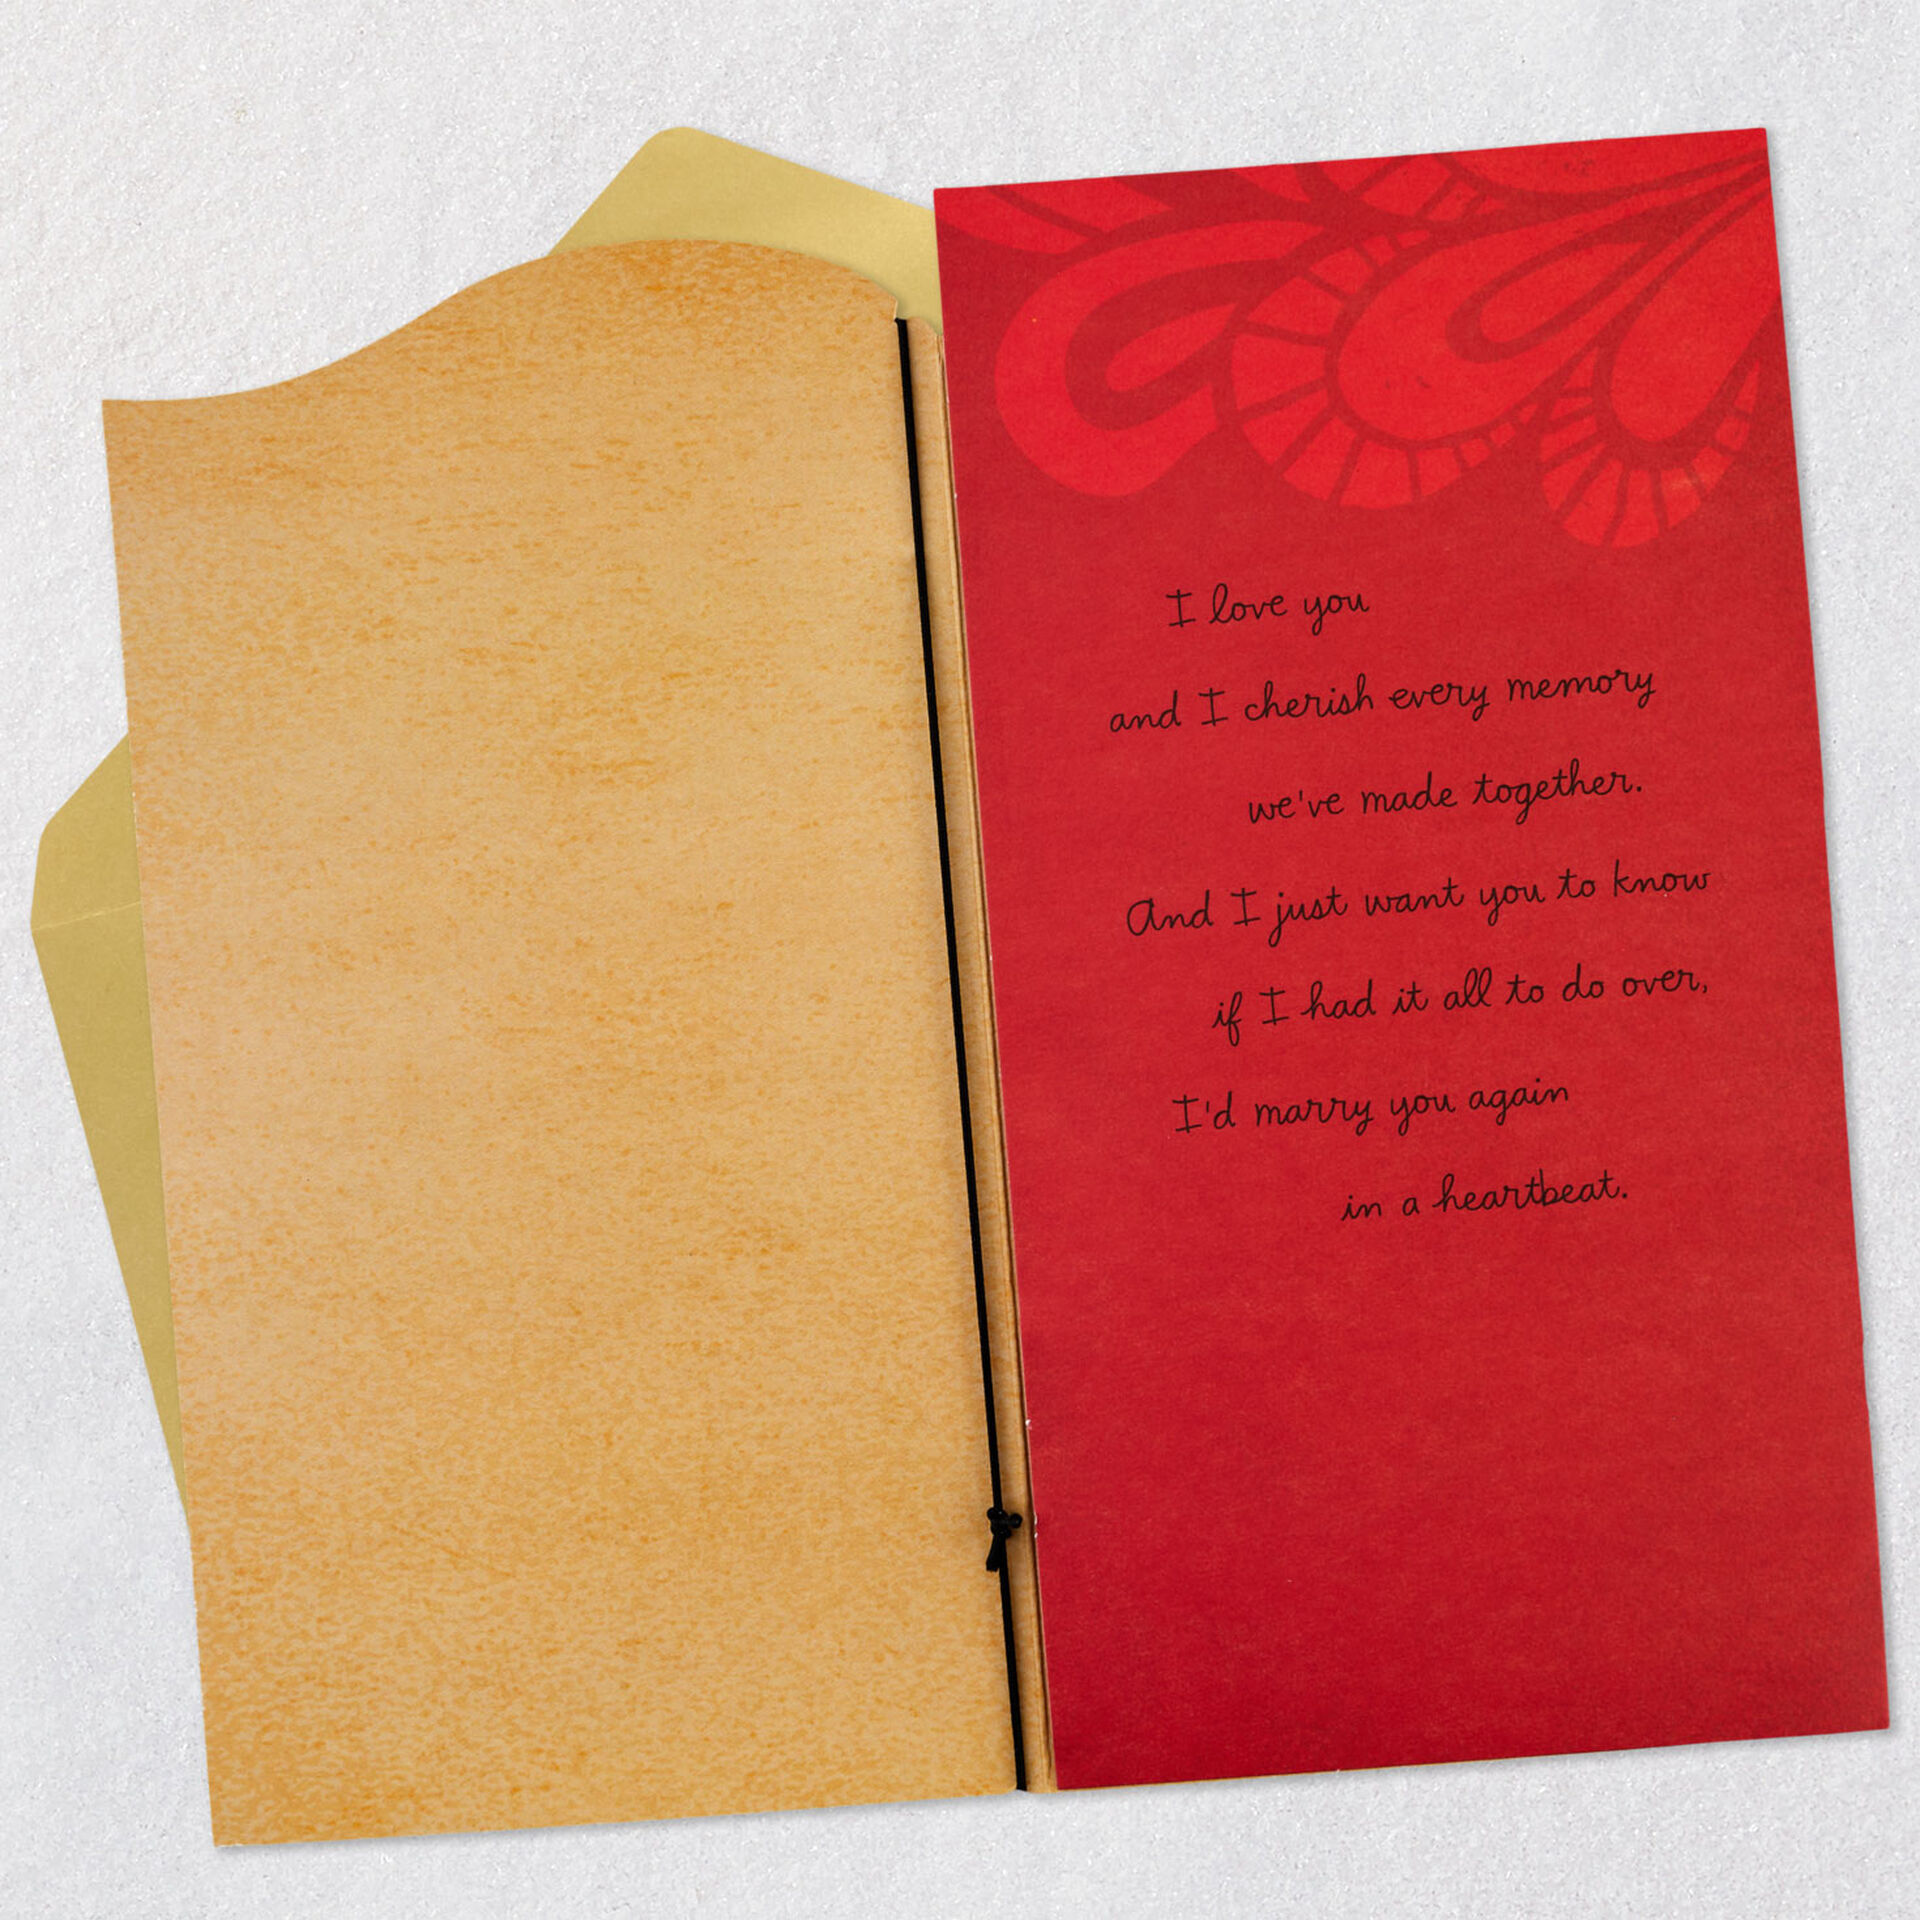 I love you
and I cherish every memory
we've made together.
And I just want you to know
if I had it all to do over,
I'd marry you again
in a heartbeat.